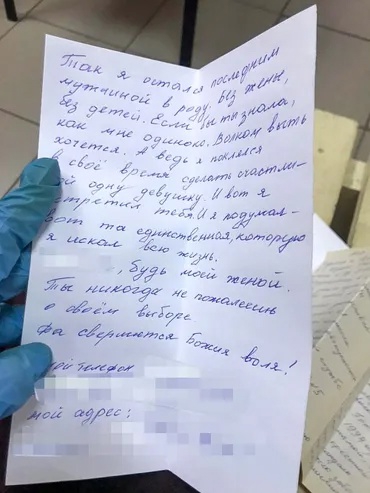 Так я остался последним
мужчиной в роду. Без жены,
без детей. Если бы ты знала,
как мне одиноко. Волком выть
хочется. А ведь я поклялся
в своё время сделать счастли-
ой одну девушку. И вот я
стретил тебя. И я подумал-
вот та единственная, которую
я искал всю жизнь.
, будь моей женой.
Ты никогда не пожалеешь
о своём выборе
Да свершится Божия воля!
ой телефон
мой адрес: